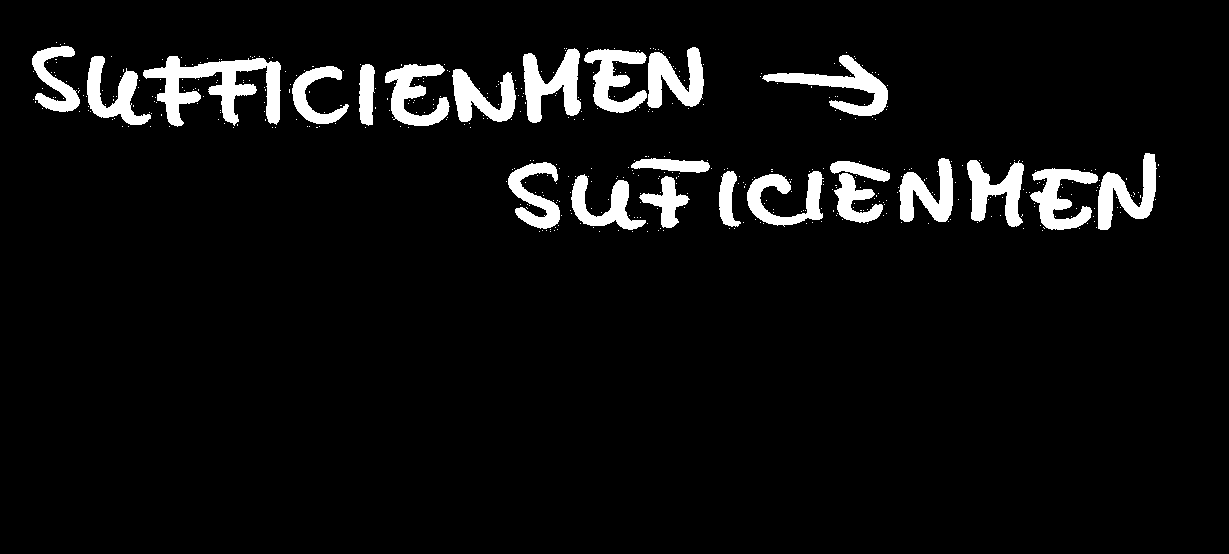 SUFFICIENMEN →
SUFICIENMEN